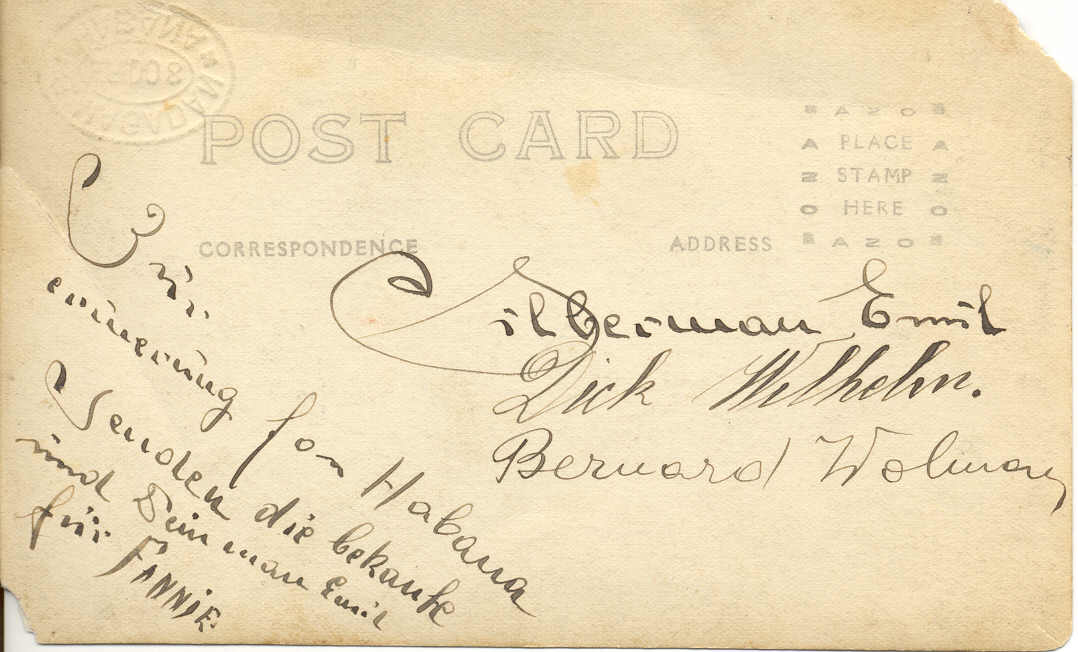 POST CARD
A Z O
PLACE
STAMP
HERE
A Z O
CORRESPONDENCE
ADDRESS
Zür
erinerung fon Habana
Senden die bekante
und Dein man Emil
für FANNIE
Silberman Emil
Dick Wilhelm.
Bernard Wolman